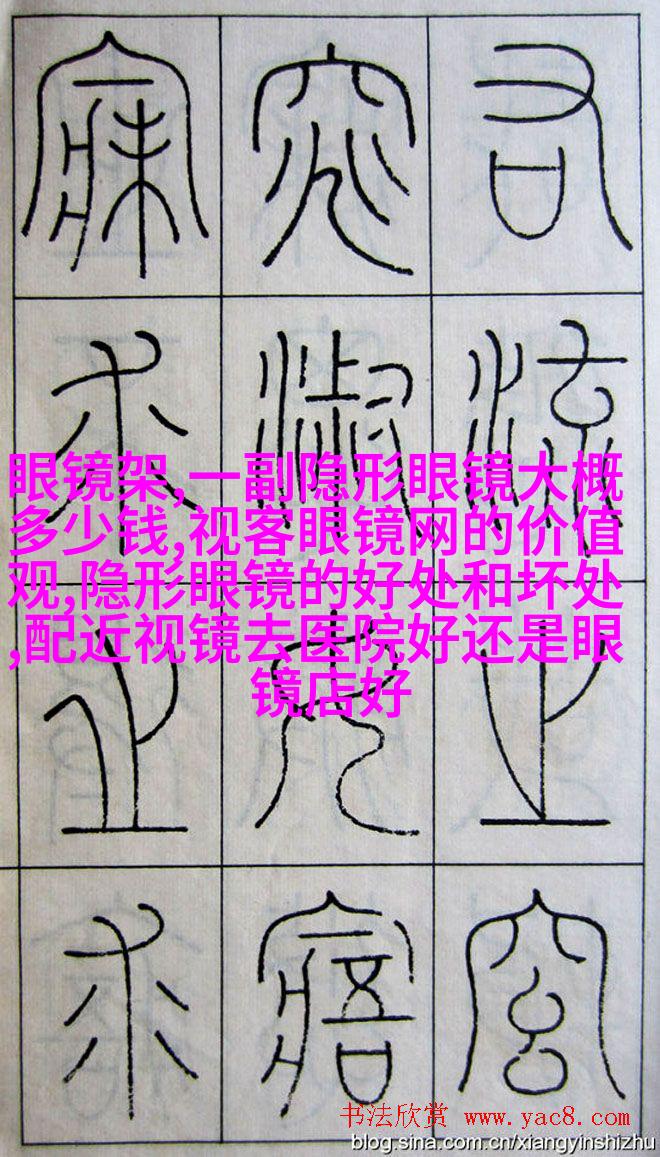 右流之窈
窕淑女寤
寐求之求
眼镜架,一副隐形眼镜大概
多少钱,视客眼镜网的价值
观,隐形眼镜的好处和坏处
,配近视镜去医院好还是眼
镜店好
书法欣赏 www.yac8.com
blog.sina.com.cn/xiangyinshizhu